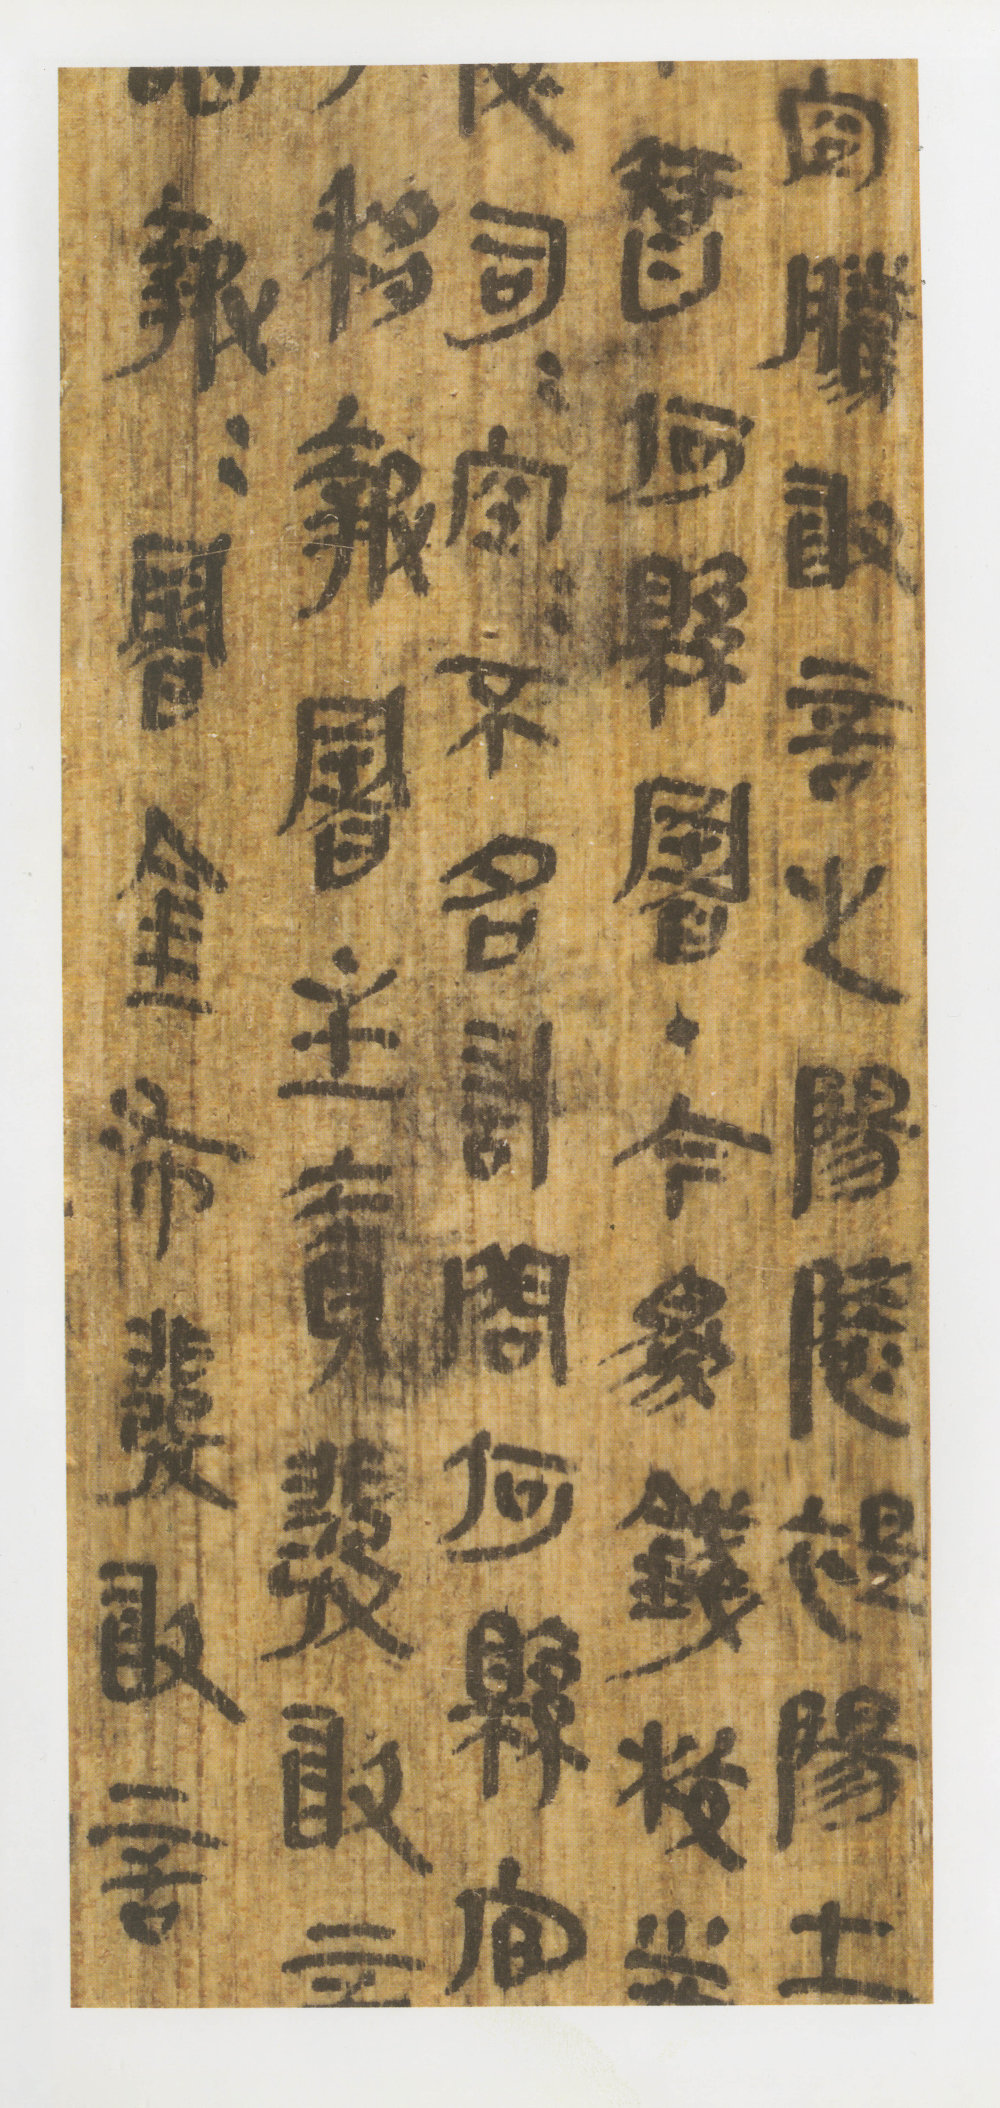 空騰敢言之陽陵褆陽士
智何縣署·今為錢校券
陵司=空=不名計問何縣官
移報署主責發敢言
報=署金布發敢言